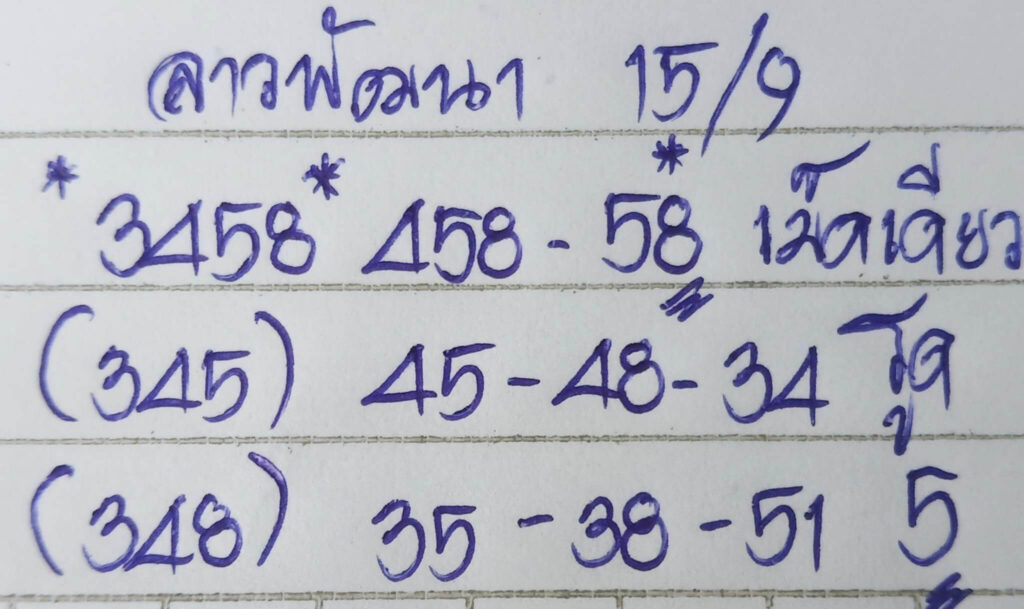 ลาวพัฒนา 15/9
*3458* 458 - 58* เม็ดเดียว
(345) 45 - 48 - 34 รูด
(348) 35 - 38 - 51 5